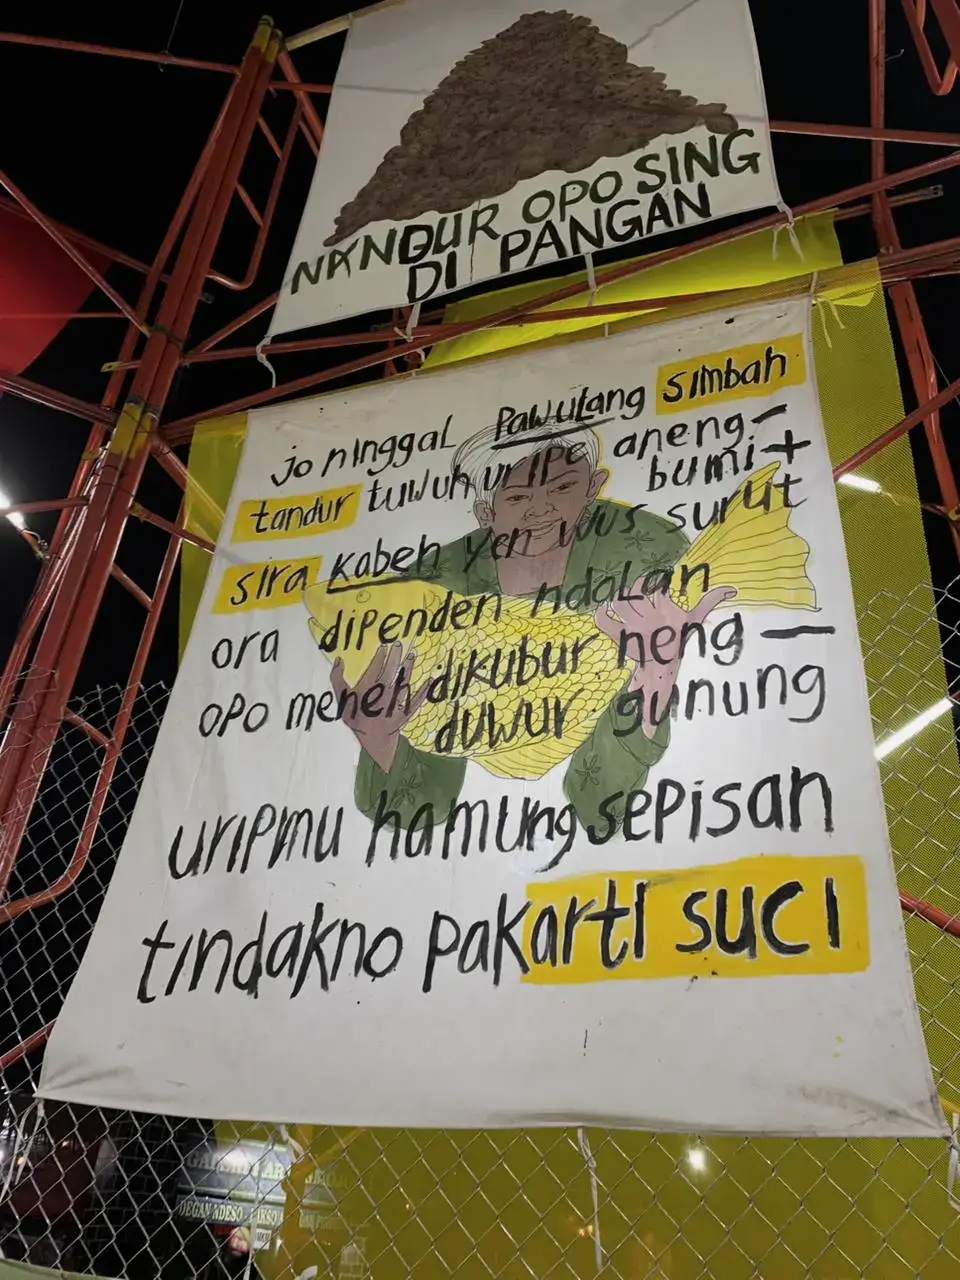 NANDUR OPO SING
DI PANGAN
jo ninggal Pawulang simbah
tandur tuwuh uripe aneng-
bumi+
sira Kabeh yen wus surut
ora dipenden ndalan
opo meneh dikubur neng-
duwur gunung
uripmu hamung sepisan
tindakno pakarti suci
DEGAN NDESO